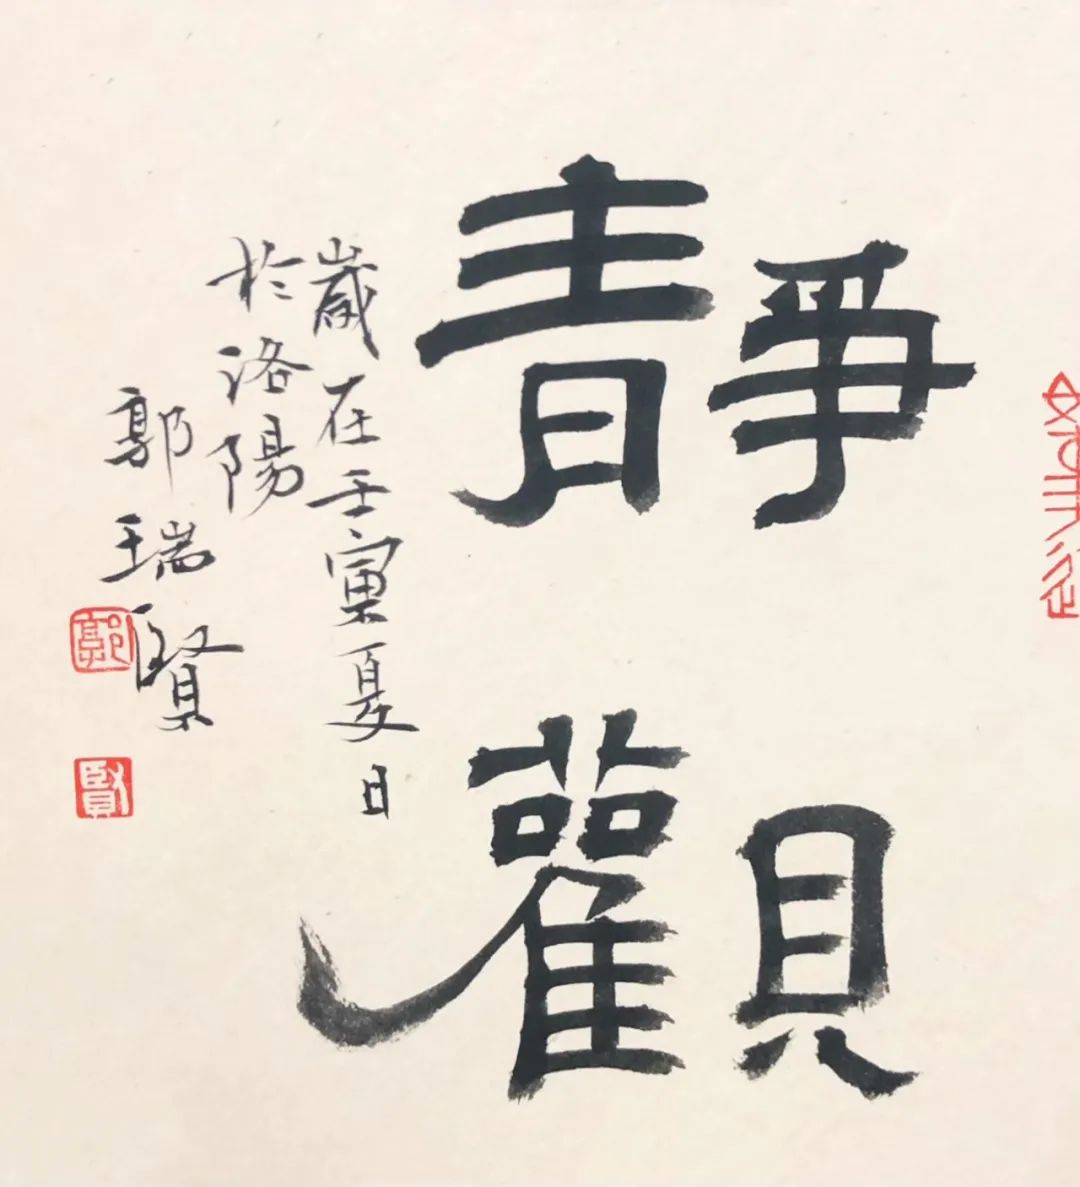 靜觀
歲在壬寅夏日
於洛陽
郭瑞賢
郭
賢